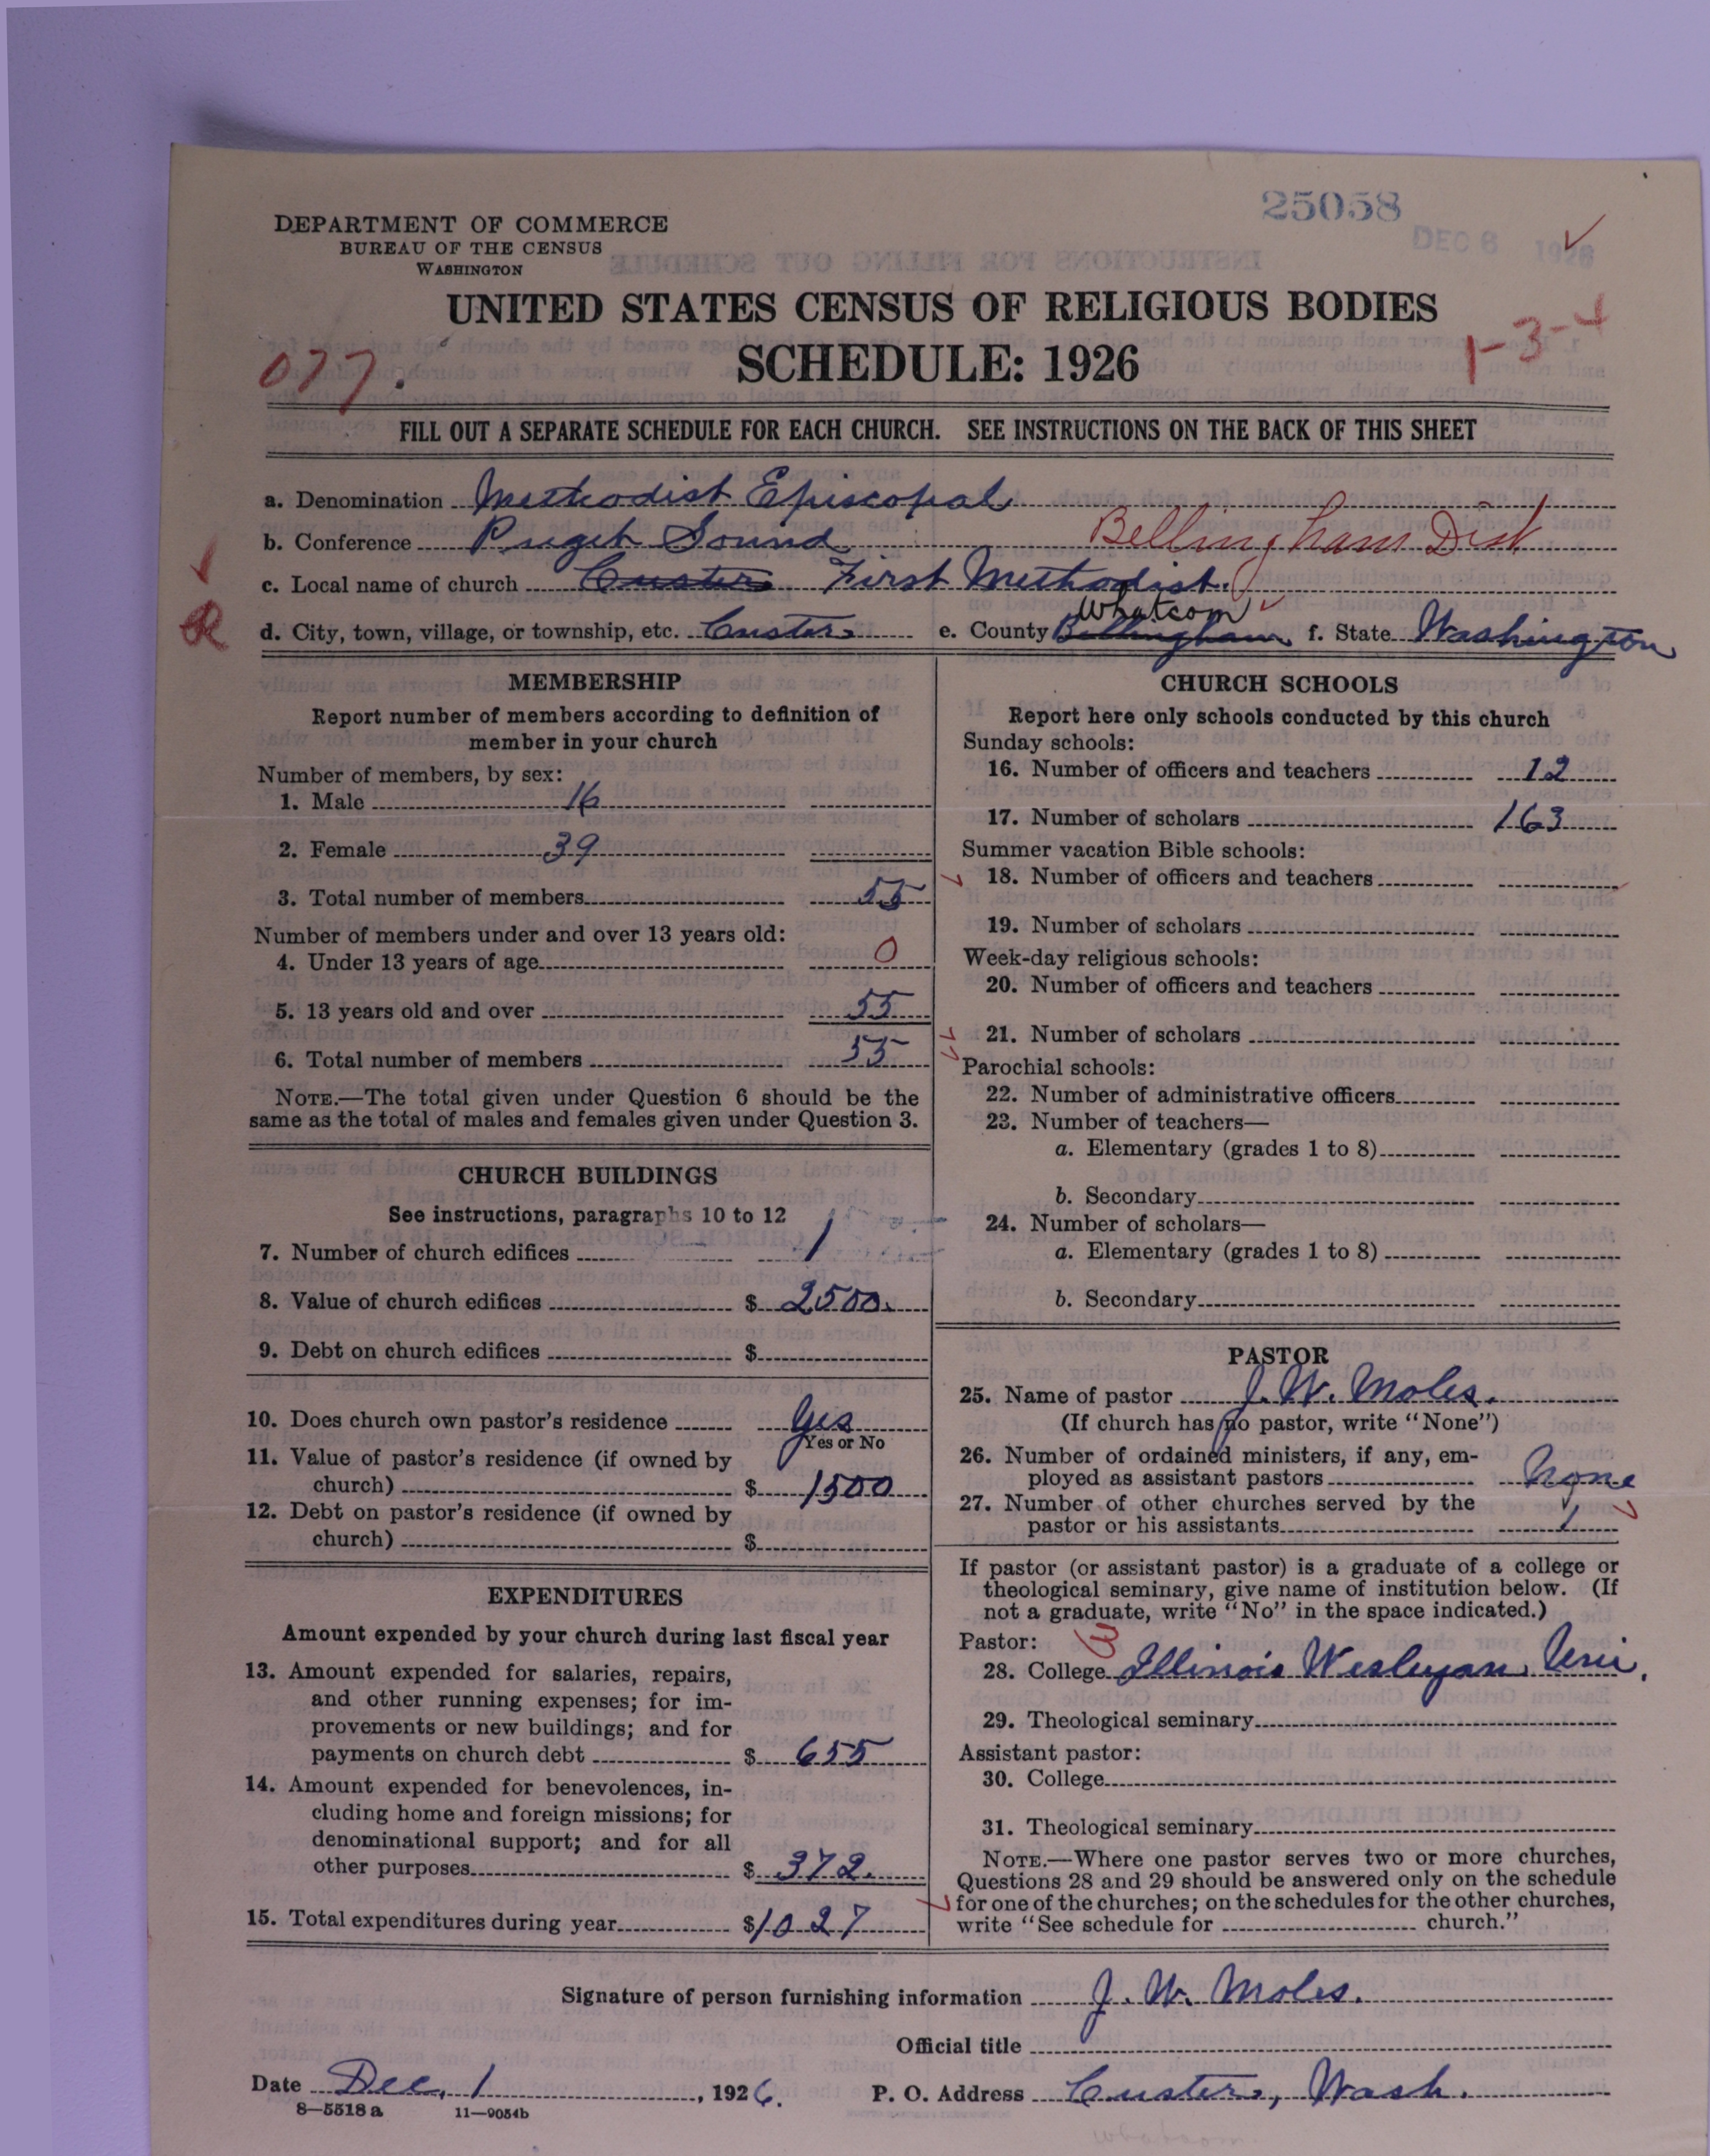 25058
DEC 8 1926
DEPARTMENT OF COMMERCE
BUREAU OF THE CENSUS
WASHINGTON
UNITED STATES CENSUS OF RELIGIOUS BODIES
SCHEDULE: 1926
077.
1-3-4
FILL OUT A SEPARATE SCHEDULE FOR EACH CHURCH. SEE INSTRUCTIONS ON THE BACK OF THIS SHEET
a. Denomination Methodist Episcopal
b. Conference Puget Sound Bellingham Dist
c. Local name of church Custer First Methodist.
d. City, town, village, or township, etc. Custer e. County Bellingham Whatcom f. State Washington
MEMBERSHIP
Report number of members according to definition of
member in your church
Number of members, by sex:
1. Male 16
2. Female 39
3. Total number of members 55
Number of members under and over 13 years old:
4. Under 13 years of age 0
5. 13 years old and over 55
6. Total number of members 55
NOTE.—The total given under Question 6 should be the
same as the total of males and females given under Question 3.
CHURCH BUILDINGS
See instructions, paragraphs 10 to 12
7. Number of church edifices 1
8. Value of church edifices $ 2500.
9. Debt on church edifices $
10. Does church own pastor's residence Yes
Yes or No
11. Value of pastor's residence (if owned by
church) $ 1500
12. Debt on pastor's residence (if owned by
church) $
EXPENDITURES
Amount expended by your church during last fiscal year
13. Amount expended for salaries, repairs,
and other running expenses; for im-
provements or new buildings; and for
payments on church debt $ 655
14. Amount expended for benevolences, in-
cluding home and foreign missions; for
denominational support; and for all
other purposes $ 372.
15. Total expenditures during year $ 1027
CHURCH SCHOOLS
Report here only schools conducted by this church
Sunday schools:
16. Number of officers and teachers 12
17. Number of scholars 163
Summer vacation Bible schools:
18. Number of officers and teachers
19. Number of scholars
Week-day religious schools:
20. Number of officers and teachers
21. Number of scholars
Parochial schools:
22. Number of administrative officers
23. Number of teachers—
a. Elementary (grades 1 to 8)
b. Secondary
24. Number of scholars—
a. Elementary (grades 1 to 8)
b. Secondary
PASTOR
25. Name of pastor J. W. Moles.
(If church has no pastor, write "None")
26. Number of ordained ministers, if any, em-
ployed as assistant pastors None
27. Number of other churches served by the
pastor or his assistants 1
If pastor (or assistant pastor) is a graduate of a college or
theological seminary, give name of institution below. (If
not a graduate, write "No" in the space indicated.)
Pastor:
28. College Illinois Wesleyan Uni.
29. Theological seminary
Assistant pastor:
30. College
31. Theological seminary
NOTE.—Where one pastor serves two or more churches,
Questions 28 and 29 should be answered only on the schedule
for one of the churches; on the schedules for the other churches,
write "See schedule for church."
Signature of person furnishing information J. W. Moles.
Official title
Date Dec, 1, 1926. P. O. Address Custer, Wash.
8—5518 a 11—9054b